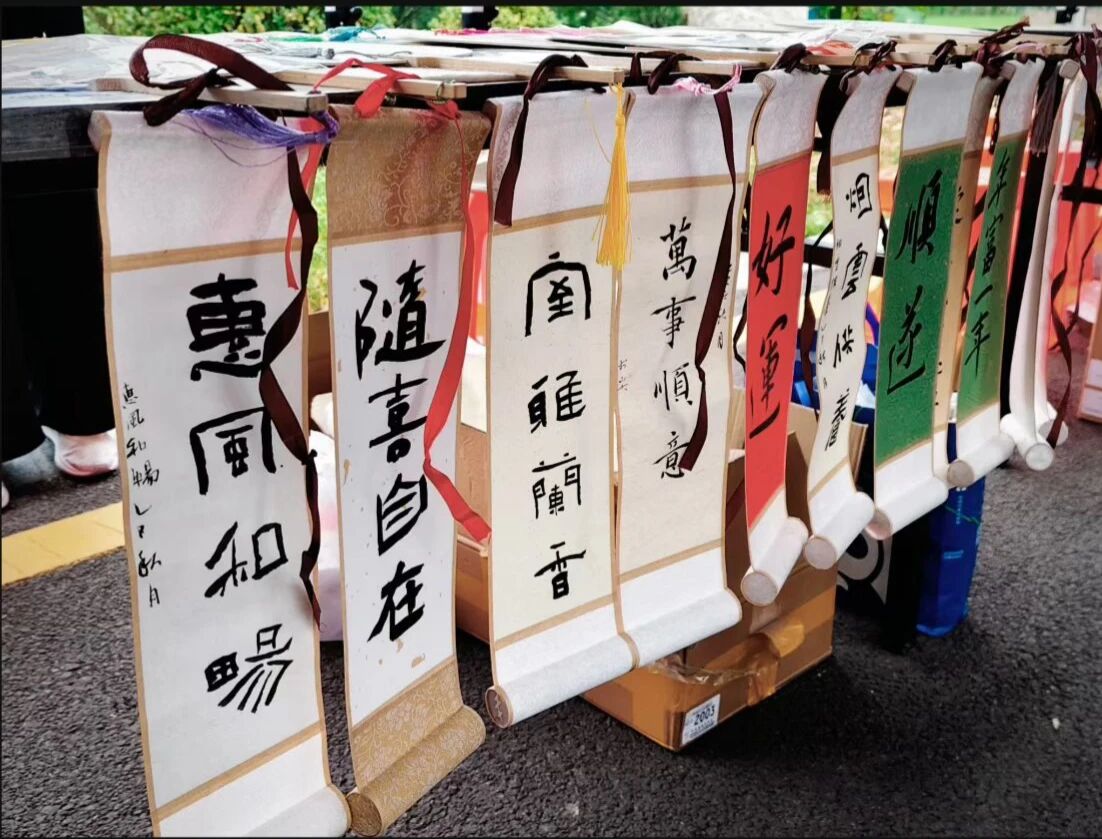 惠風和暢
惠風和暢乙巳秋月
隨喜自在
室雅蘭香
萬事順意
好運
烟雲供養
順遂
年富一年
2003